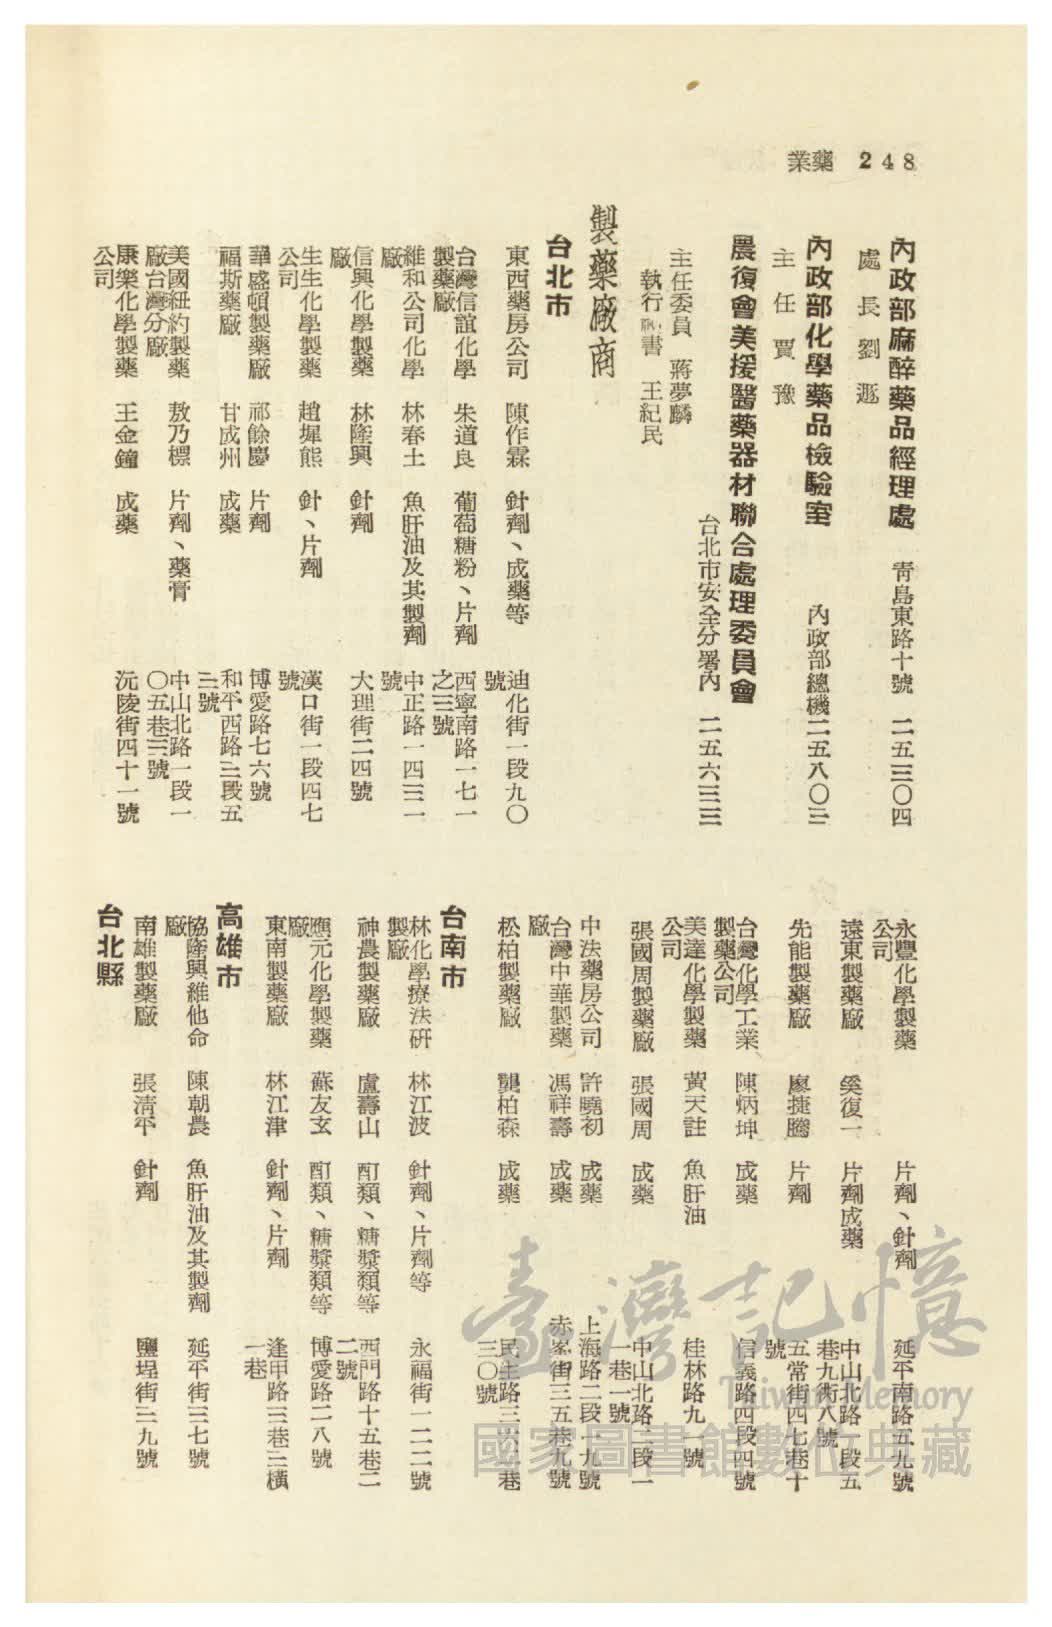 藥業 248
內政部麻醉藥品經理處 靑島東路十號 二五三〇四
處長 劉
內政部化學藥品檢驗室 內政部總機二五八〇三
主任 賈豫
農復會美援醫藥器材聯合處理委員會
台北市安全分署內 二五六三三
主任委員 蔣夢麟
執行 書 王紀民
製藥廠商
台北市
東西藥房公司 陳作霖 針劑、成藥等 迪化街一段九〇
號
台灣信誼化學 朱道良 葡萄糖粉、片劑 西寧南路一七一
製藥廠 之三號
維和公司化學 林春土 魚肝油及其製劑 中正路一四三一
廠 號
信興化學製藥 林隆興 針劑 大理街二四號
廠
生生化學製藥 趙墀熊 針、片劑 漢口街一段四七
公司 號
華盛頓製藥廠 祁餘慶 片劑 博愛路七六號
福斯藥廠 甘成州 成藥 和平西路三段五
三號
美國紐約製藥 敖乃標 片劑、藥膏 中山北路一段一
廠台灣分廠 〇五巷三號
康樂化學製藥 王金鐘 成藥 沅陵街四十一號
公司
永豐化學製藥 片劑、針劑 延平南路五九號
公司
遠東製藥廠 奚復一 片劑成藥 中山北路一段五
巷九衖八號
先能製藥廠 廖捷騰 片劑 五常街四七巷十
號
台灣化學工業 陳炳坤 成藥 信義路四段四號
製藥公司
美達化學製藥 黃天註 魚肝油 桂林路九一號
公司
張國周製藥廠 張國周 成藥 中山北路二段一
一巷一號
中法藥房公司 許曉初 成藥 上海路二段一九號
台灣中華製藥 馮祥壽 成藥 赤峯街三五巷九號
廠
松柏製藥廠 龔柏森 成藥 民生路三六一巷
三〇號
台南市
林化學療法研 林江波 針劑、片劑等 永福街一二二號
製廠
神農製藥廠 盧壽山 酊類、糖漿類等 西門路十五巷二
二號
應元化學製藥 蘇友玄 酊類、糖漿類等 博愛路二八號
廠
東南製藥廠 林江津 針劑、片劑 逢甲路三巷三橫
一巷
高雄市
協隆興維他命 陳朝農 魚肝油及其製劑 延平街三七號
廠
南雄製藥廠 張淸平 針劑 鹽埕街三九號
台北縣
臺灣記憶
Taiwan Memory
國家圖書館數位典藏